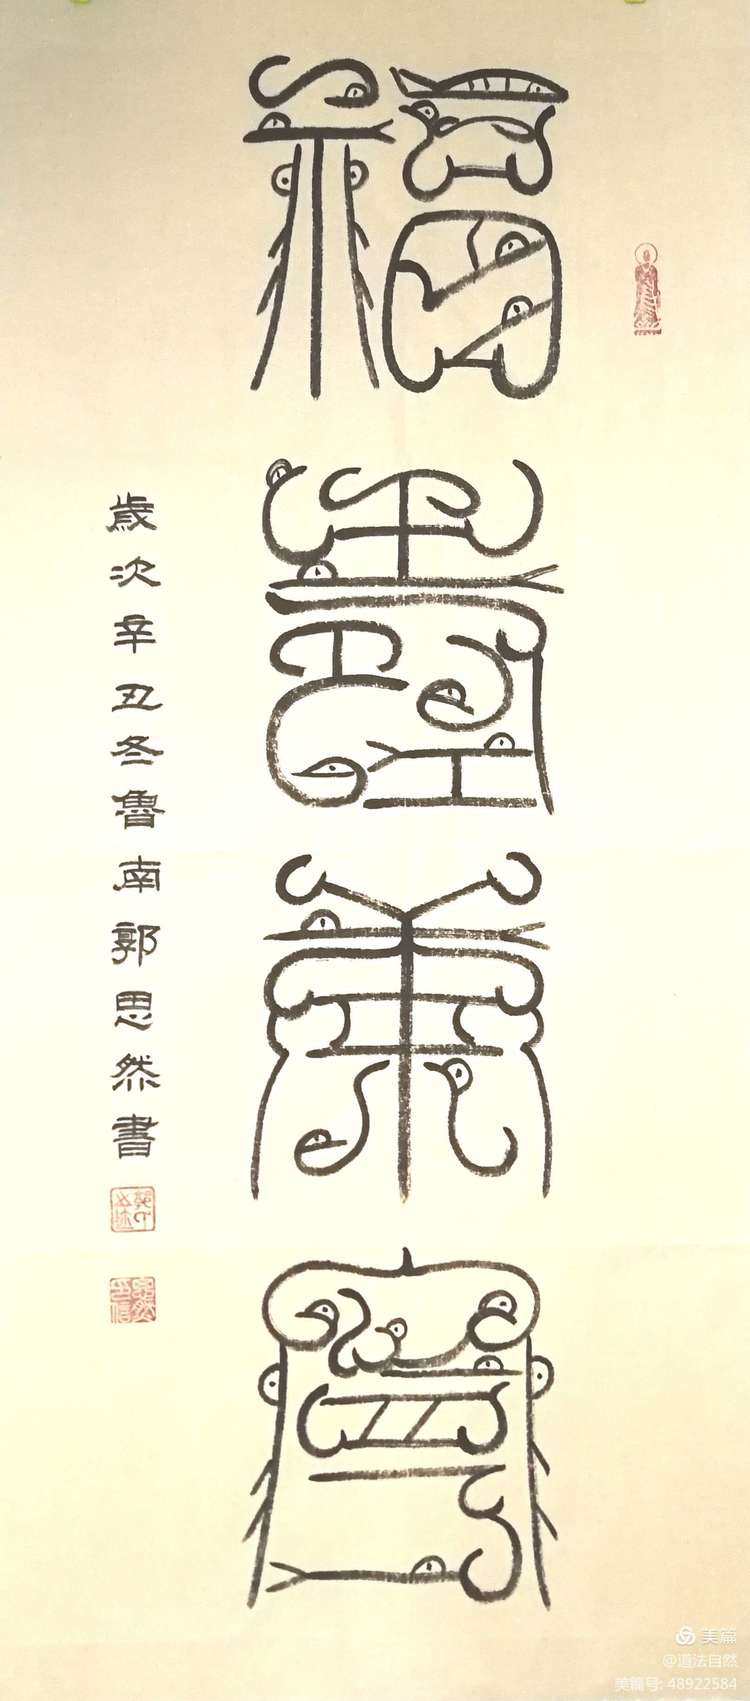 福壽康寧
歲次辛丑冬魯南郭思然書
思然印信
美篇
@道法自然
美篇号: 48922584